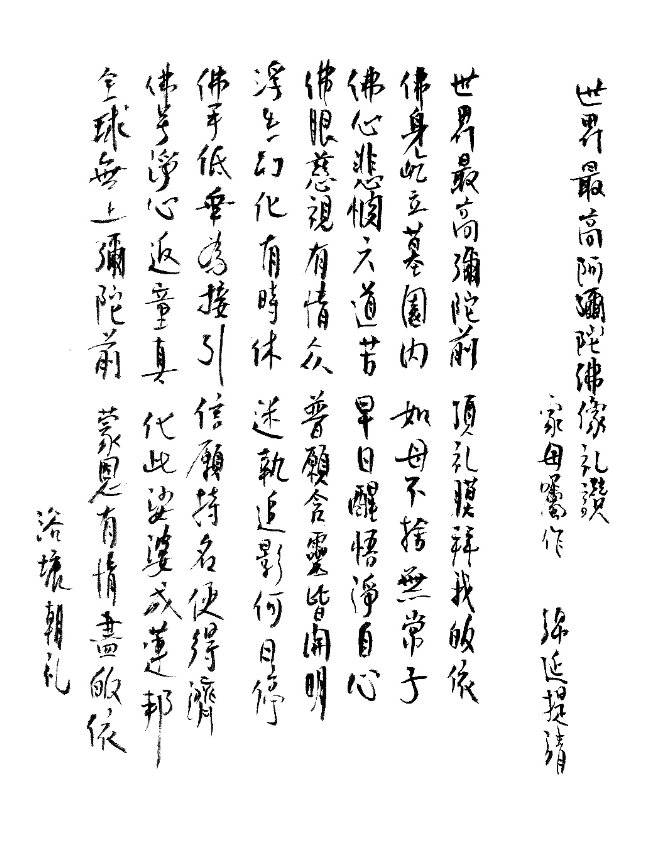 世界最高阿彌陀佛像礼讚
家母囑作 張延提清
世界最高彌陀前 頂礼膜拜我皈依
佛身屹立墓園内 如母不捨無常子
佛心悲愍六道苦 早日醒悟淨自心
佛眼慈視有情众 普願含靈皆開明
浮生幻化有時休 迷執追影何日停
佛手低垂為接引 信願持名便得濟
佛号淨心返童真 代此娑婆成蓮邦
全球無上彌陀前 蒙恩有情盡皈依
浴壤朝礼